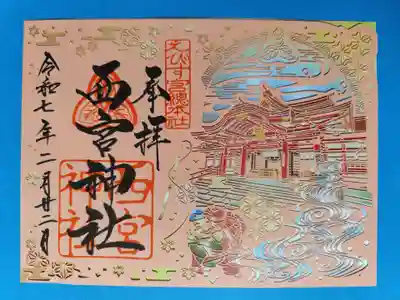 奉拝
えびす宮総本社
西宮神社
西宮
神社
令和七年二月廿二月